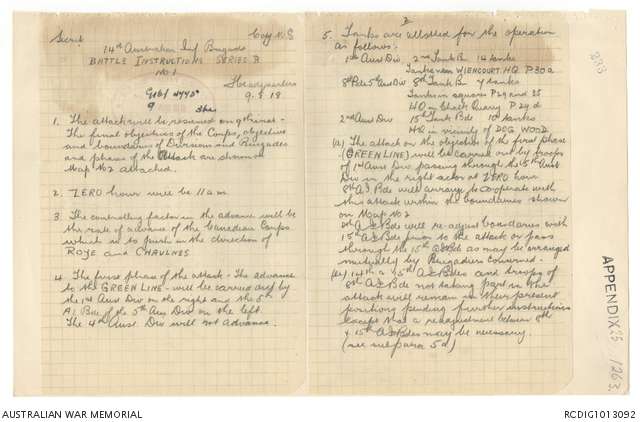 Secret Copy No 8
14th Australian Inf Brigade
BATTLE INSTRUCTIONS SERIES B
No 1
Headquarters
9.8.18
1. The attack will be resumed on 9th inst -
The final objectives of the Corps, objective
and boundaries of Divisions and Brigades
and phases of the attack are shown on
Map No 2 attached.
2. ZERO hour will be 11 am.
3. The controlling factor in the advance will be
the rate of advance of the Canadian Corps
which is to push in the direction of
ROYE and CHAULNES
4. The first phase of the attack - The advance
to the GREEN LINE - will be carried out by
the 1st Aust Div on the right and the 8th
A.I. Bde of the 5th Aus Div on the left.
The 4th Aust Div will not advance.
2
5. Tanks are allotted for the operation
as follows:-
1st Aust Div, 2nd Tank Bn 14 tanks
Tanks near WIENCOURT HQ P30a
8th Bde 5th Aust Div 8th Tank Bn 7 tanks
Tanks in squares P29 and 35
HQ in Chalk Quarry P29d
2nd Aust Div 15th Tank Bde 10 tanks
HQ in vicinity of DOG WOOD
(a) The attack on the objective of the first phase
(GREEN LINE) will be carried out by troops
of 1st Aust Div passing through the 5th Aust
Div in the right sector at ZERO hour
8th A I Bde will arrange to co-operate with
this attack within the boundaries shown
on Map No 2
8th A I Bde will re-adjust boundaries with
15th A I Bde prior to the attack or pass
through the 15th A I Bde as may be arranged
mutually by Brigadiers concerned.
14th & 15th A I Bdes and troops of
8th A I Bde not taking part in the
attack will remain in their present
positions pending further instructions
except that a readjustment between 8th
& 15th A I Bdes may be necessary.
(see subpara 5a)
233
APPENDIX 25
1263
AUSTRALIAN WAR MEMORIAL
RCDIG1013092